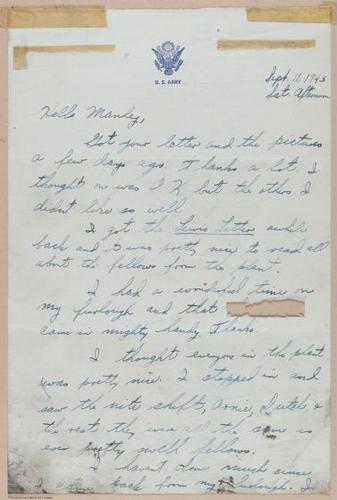 U. S. ARMY
Sept. 11, 1943
Sat. Afternoon
Hello Manley,
Got your letter and the pictures
a few days ago. Thanks a lot. I
thought one was O K but the others I
didn't like so well.
I got the Lewis Letter awhile
back and it was pretty nice to read all
about the fellows from the plant.
I had a wonderful time on
my furlough and that
came in mighty handy. Thanks.
I thought everyone in the plant
was pretty nice. I stopped in and
saw the nite shift, Arnie, Dutch, &
the rest. they were all the same as
ever pretty swell fellows.
I haven't done much since
I came back from my furlough. I